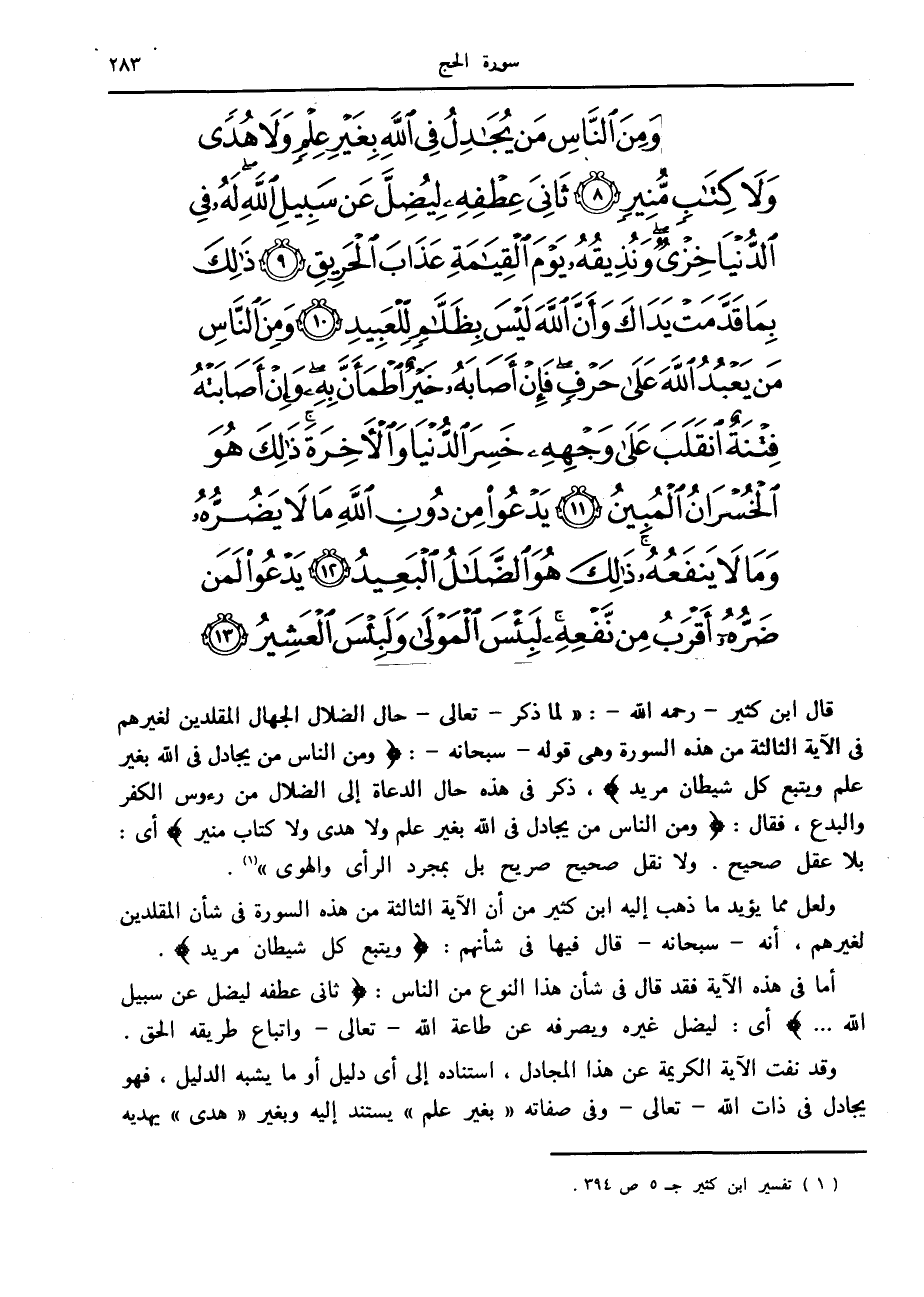 سورة الحج
٢٨٣
وَمِنَ ٱلنَّاسِ مَن يُجَٰدِلُ فِى ٱللَّهِ بِغَيْرِ عِلْمٍ وَلَا هُدًى
وَلَا كِتَٰبٍ مُّنِيرٍ ٨ ثَانِىَ عِطْفِهِۦ لِيُضِلَّ عَن سَبِيلِ ٱللَّهِ ۖ لَهُۥ فِى
ٱلدُّنْيَا خِزْىٌ ۖ وَنُذِيقُهُۥ يَوْمَ ٱلْقِيَٰمَةِ عَذَابَ ٱلْحَرِيقِ ٩ ذَٰلِكَ
بِمَا قَدَّمَتْ يَدَاكَ وَأَنَّ ٱللَّهَ لَيْسَ بِظَلَّٰمٍ لِّلْعَبِيدِ ١٠ وَمِنَ ٱلنَّاسِ
مَن يَعْبُدُ ٱللَّهَ عَلَىٰ حَرْفٍ ۖ فَإِنْ أَصَابَهُۥ خَيْرٌ ٱطْمَأَنَّ بِهِۦ ۖ وَإِنْ أَصَابَتْهُ
فِتْنَةٌ ٱنقَلَبَ عَلَىٰ وَجْهِهِۦ خَسِرَ ٱلدُّنْيَا وَٱلْأَخِرَةَ ۚ ذَٰلِكَ هُوَ
ٱلْخُسْرَانُ ٱلْمُبِينُ ١١ يَدْعُوا۟ مِن دُونِ ٱللَّهِ مَا لَا يَضُرُّهُۥ
وَمَا لَا يَنفَعُهُۥ ۚ ذَٰلِكَ هُوَ ٱلضَّلَٰلُ ٱلْبَعِيدُ ١٢ يَدْعُوا۟ لَمَن
ضَرُّهُۥٓ أَقْرَبُ مِن نَّفْعِهِۦ ۚ لَبِئْسَ ٱلْمَوْلَىٰ وَلَبِئْسَ ٱلْعَشِيرُ ١٣
قال ابن كثير – رحمه الله – : « لما ذكر – تعالى – حال الضلال الجهال المقلدين لغيرهم
فى الآية الثالثة من هذه السورة وهى قوله – سبحانه – : ﴿ ومن الناس من يجادل فى الله بغير
علم ويتبع كل شيطان مريد ﴾ ، ذكر فى هذه حال الدعاة إلى الضلال من رءوس الكفر
والبدع ، فقال : ﴿ ومن الناس من يجادل فى الله بغير علم ولا هدى ولا كتاب منير ﴾ أى :
بلا عقل صحيح . ولا نقل صحيح صريح بل بمجرد الرأى والهوى »(١) .
ولعل مما يؤيد ما ذهب إليه ابن كثير من أن الآية الثالثة من هذه السورة فى شأن المقلدين
لغيرهم ، أنه – سبحانه – قال فيها فى شأنهم : ﴿ ويتبع كل شيطان مريد ﴾ .
أما فى هذه الآية فقد قال فى شأن هذا النوع من الناس : ﴿ ثانى عطفه ليضل عن سبيل
الله ... ﴾ أى : ليضل غيره ويصرفه عن طاعة الله – تعالى – واتباع طريقه الحق .
وقد نفت الآية الكريمة عن هذا المجادل ، استناده إلى أى دليل أو ما يشبه الدليل ، فهو
يجادل فى ذات الله – تعالى – وفى صفاته « بغير علم » يستند إليه وبغير « هدى » يهديه
( ١ ) تفسير ابن كثير جـ ٥ ص ٣٩٤ .